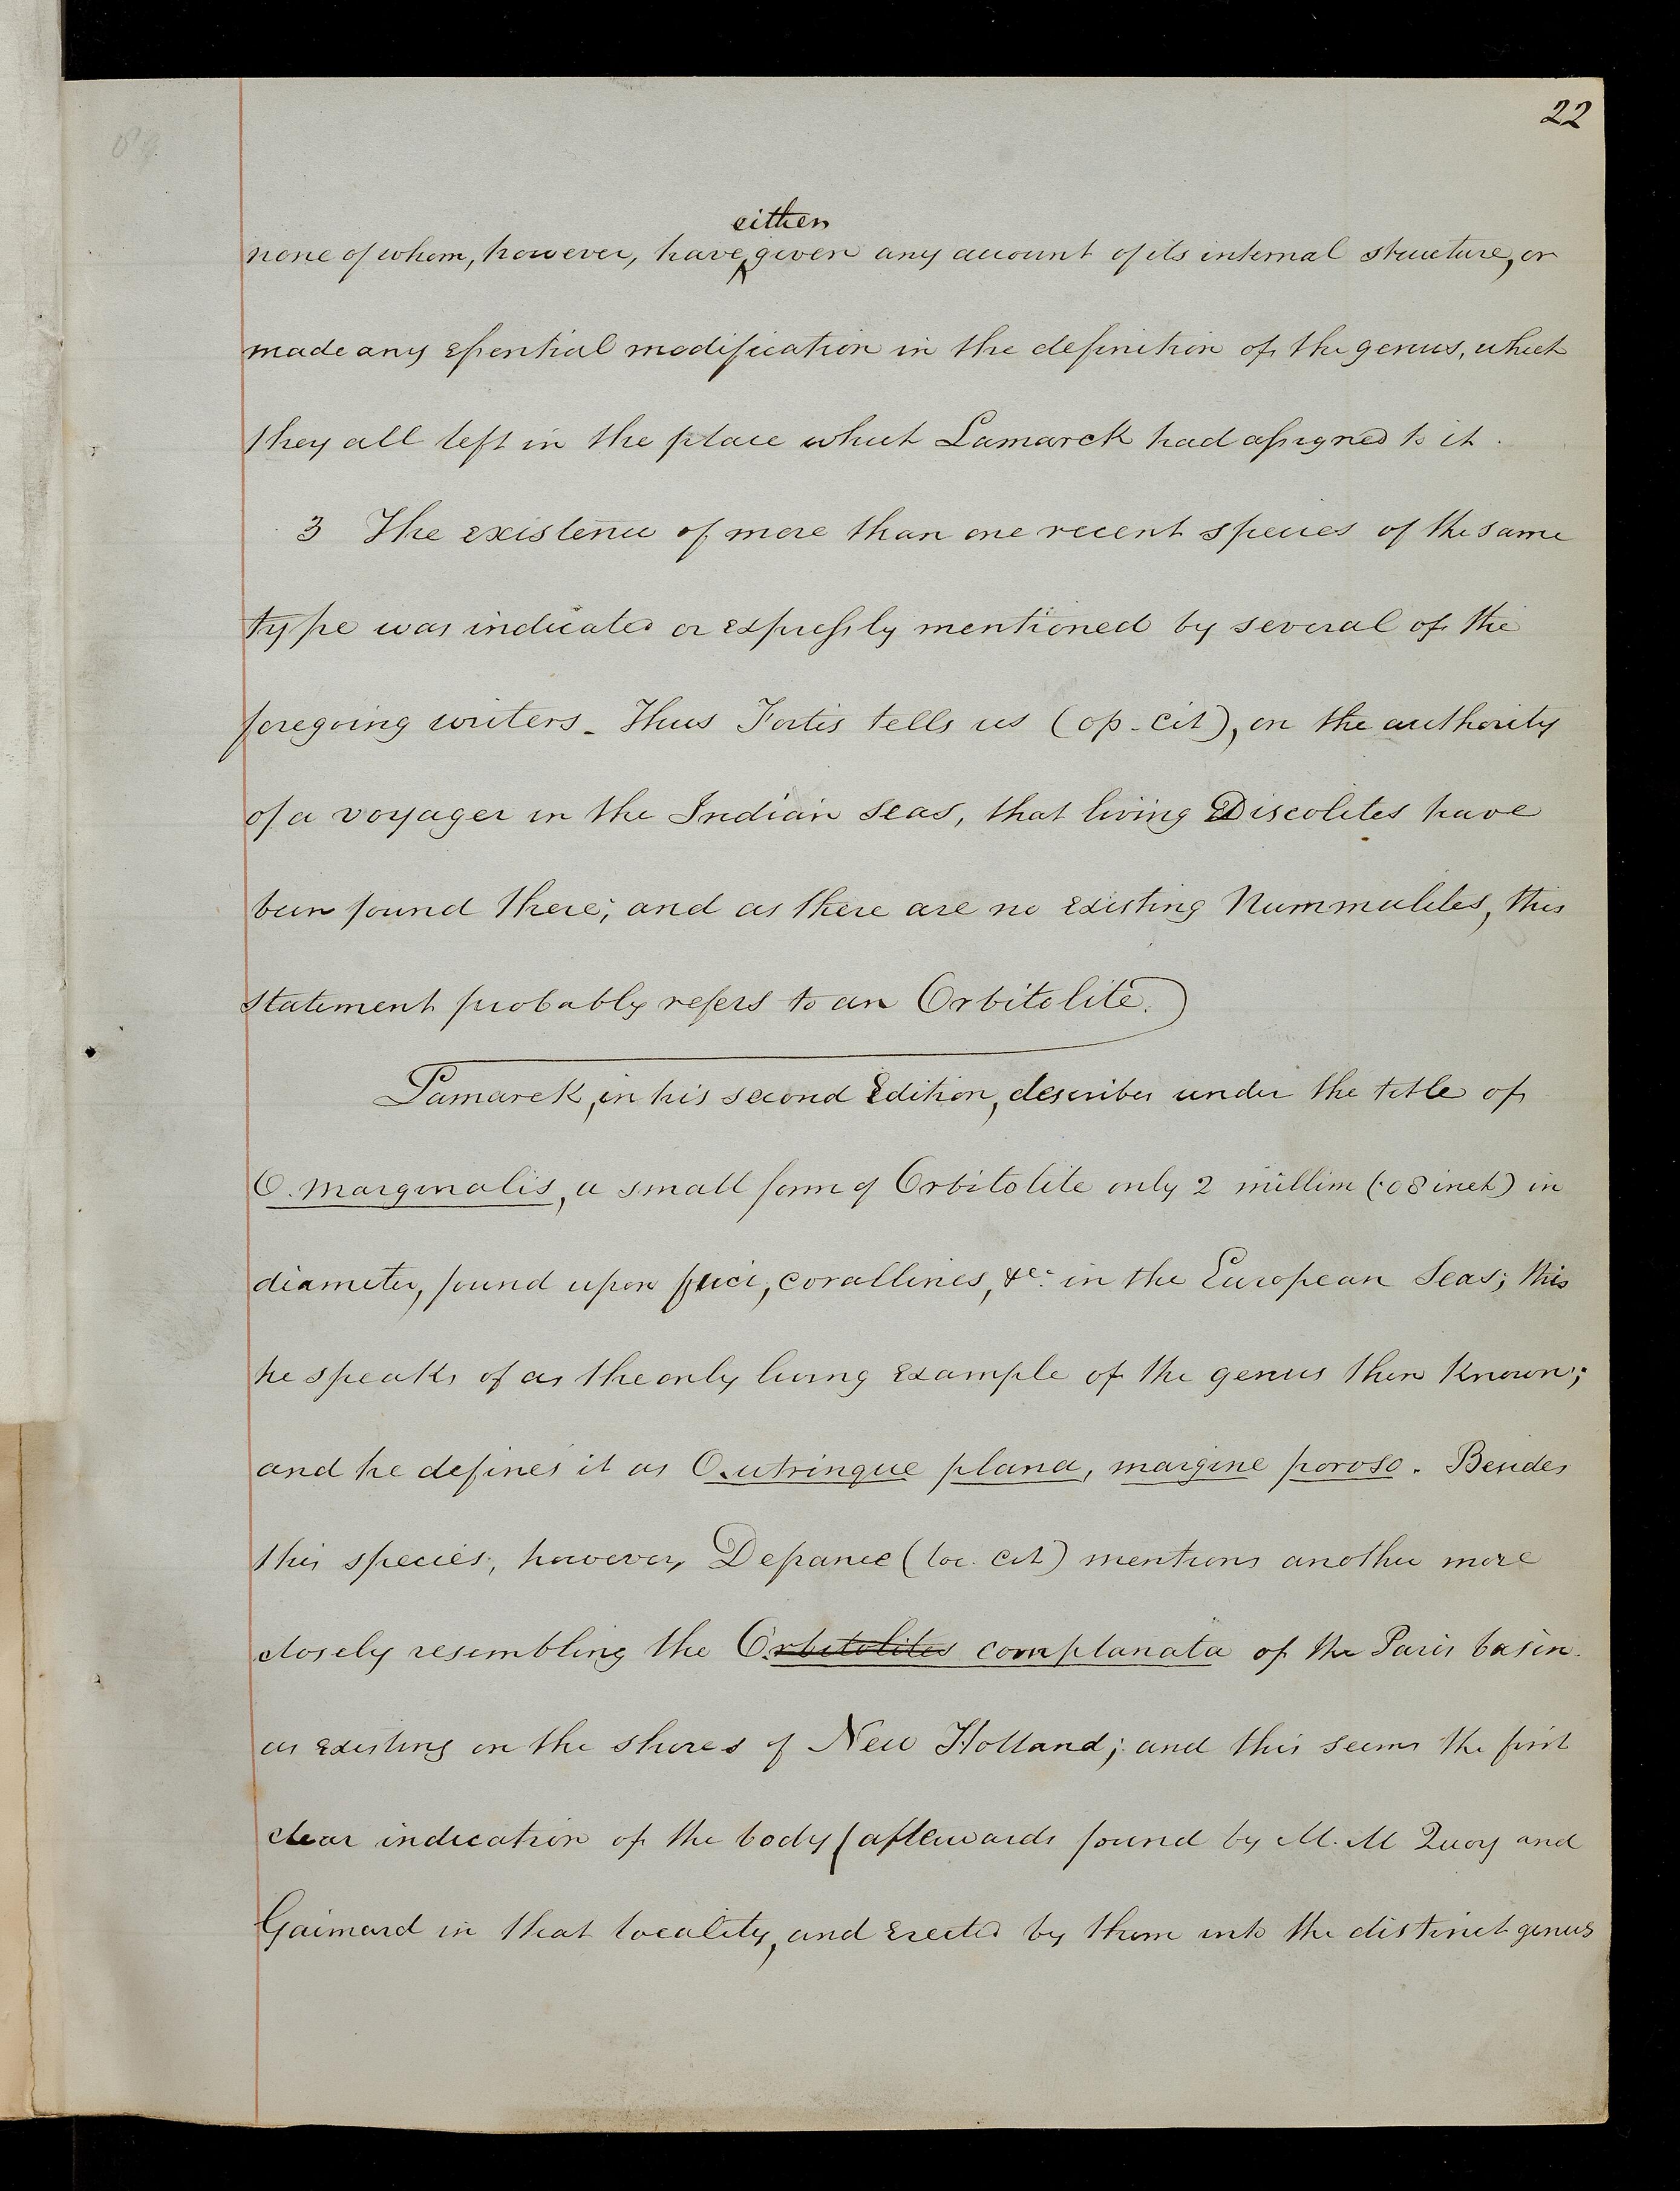 22
none of whom, however, have either given any account of its internal structure, or
made any essential modification in the definition of the genus, which
they all left in the place which Lamarck had assigned to it.
3 The existence of more than one recent species of the same
type was indicated or expressly mentioned by several of the
foregoing writers. Thus Fortis tells us (op. cit), on the authority
of a voyager in the Indian Seas, that living Discolites have
been found there; and as there are no existing Nummulites, this
statement probably refers to an Orbitolite.
Lamarck, in his second Edition, describes under the title of
O. marginalis, a small form of Orbitolite only 2 millim (·08 inch) in
diameter, found upon fuci, corallines, &c. in the European Seas; this
he speaks of as the only living example of the genus then known;
and he defines it as O. utrinque plana, margine poroso. Besides
this species, however, Defrance (loc. cit) mentions another more
closely resembling the Orbitolites complanata of the Paris basin.
as existing on the shores of New Holland; and this seems the first
clear indication of the body (afterwards found by M. M Quoy and
Gaimard in that locality, and erected by them into the distinct genus